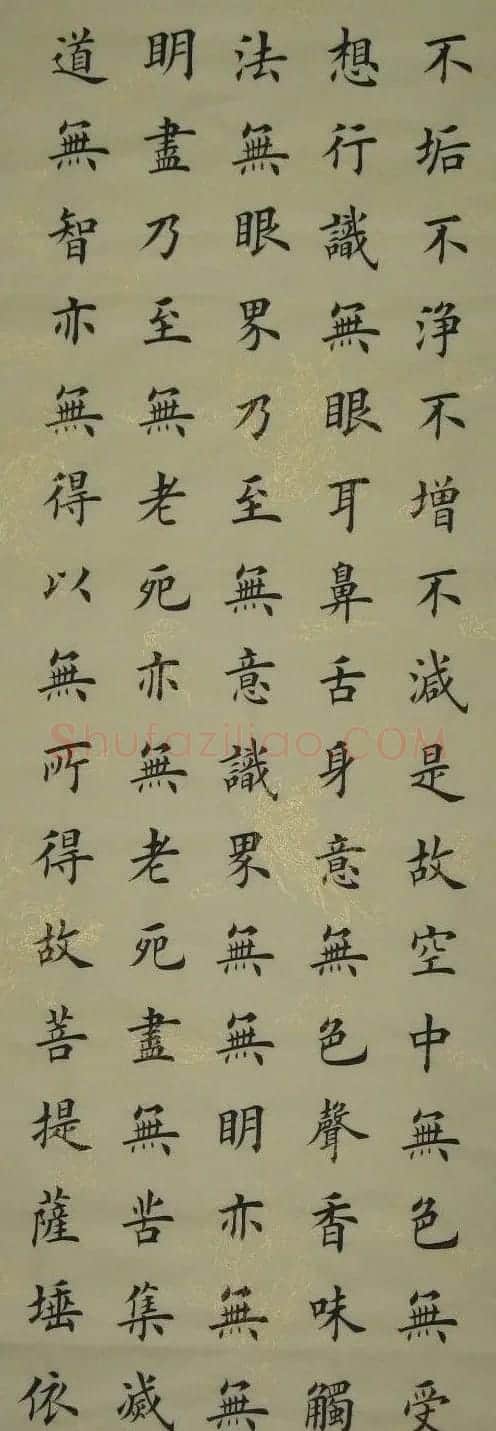 不垢不淨不增不減是故空中無色無受
想行識無眼耳鼻舌身意無色聲香味觸
法無眼界乃至無意識界無無明亦無無
明盡乃至無老死亦無老死盡無苦集滅
道無智亦無得以無所得故菩提薩埵依
Shufaziliao.COM